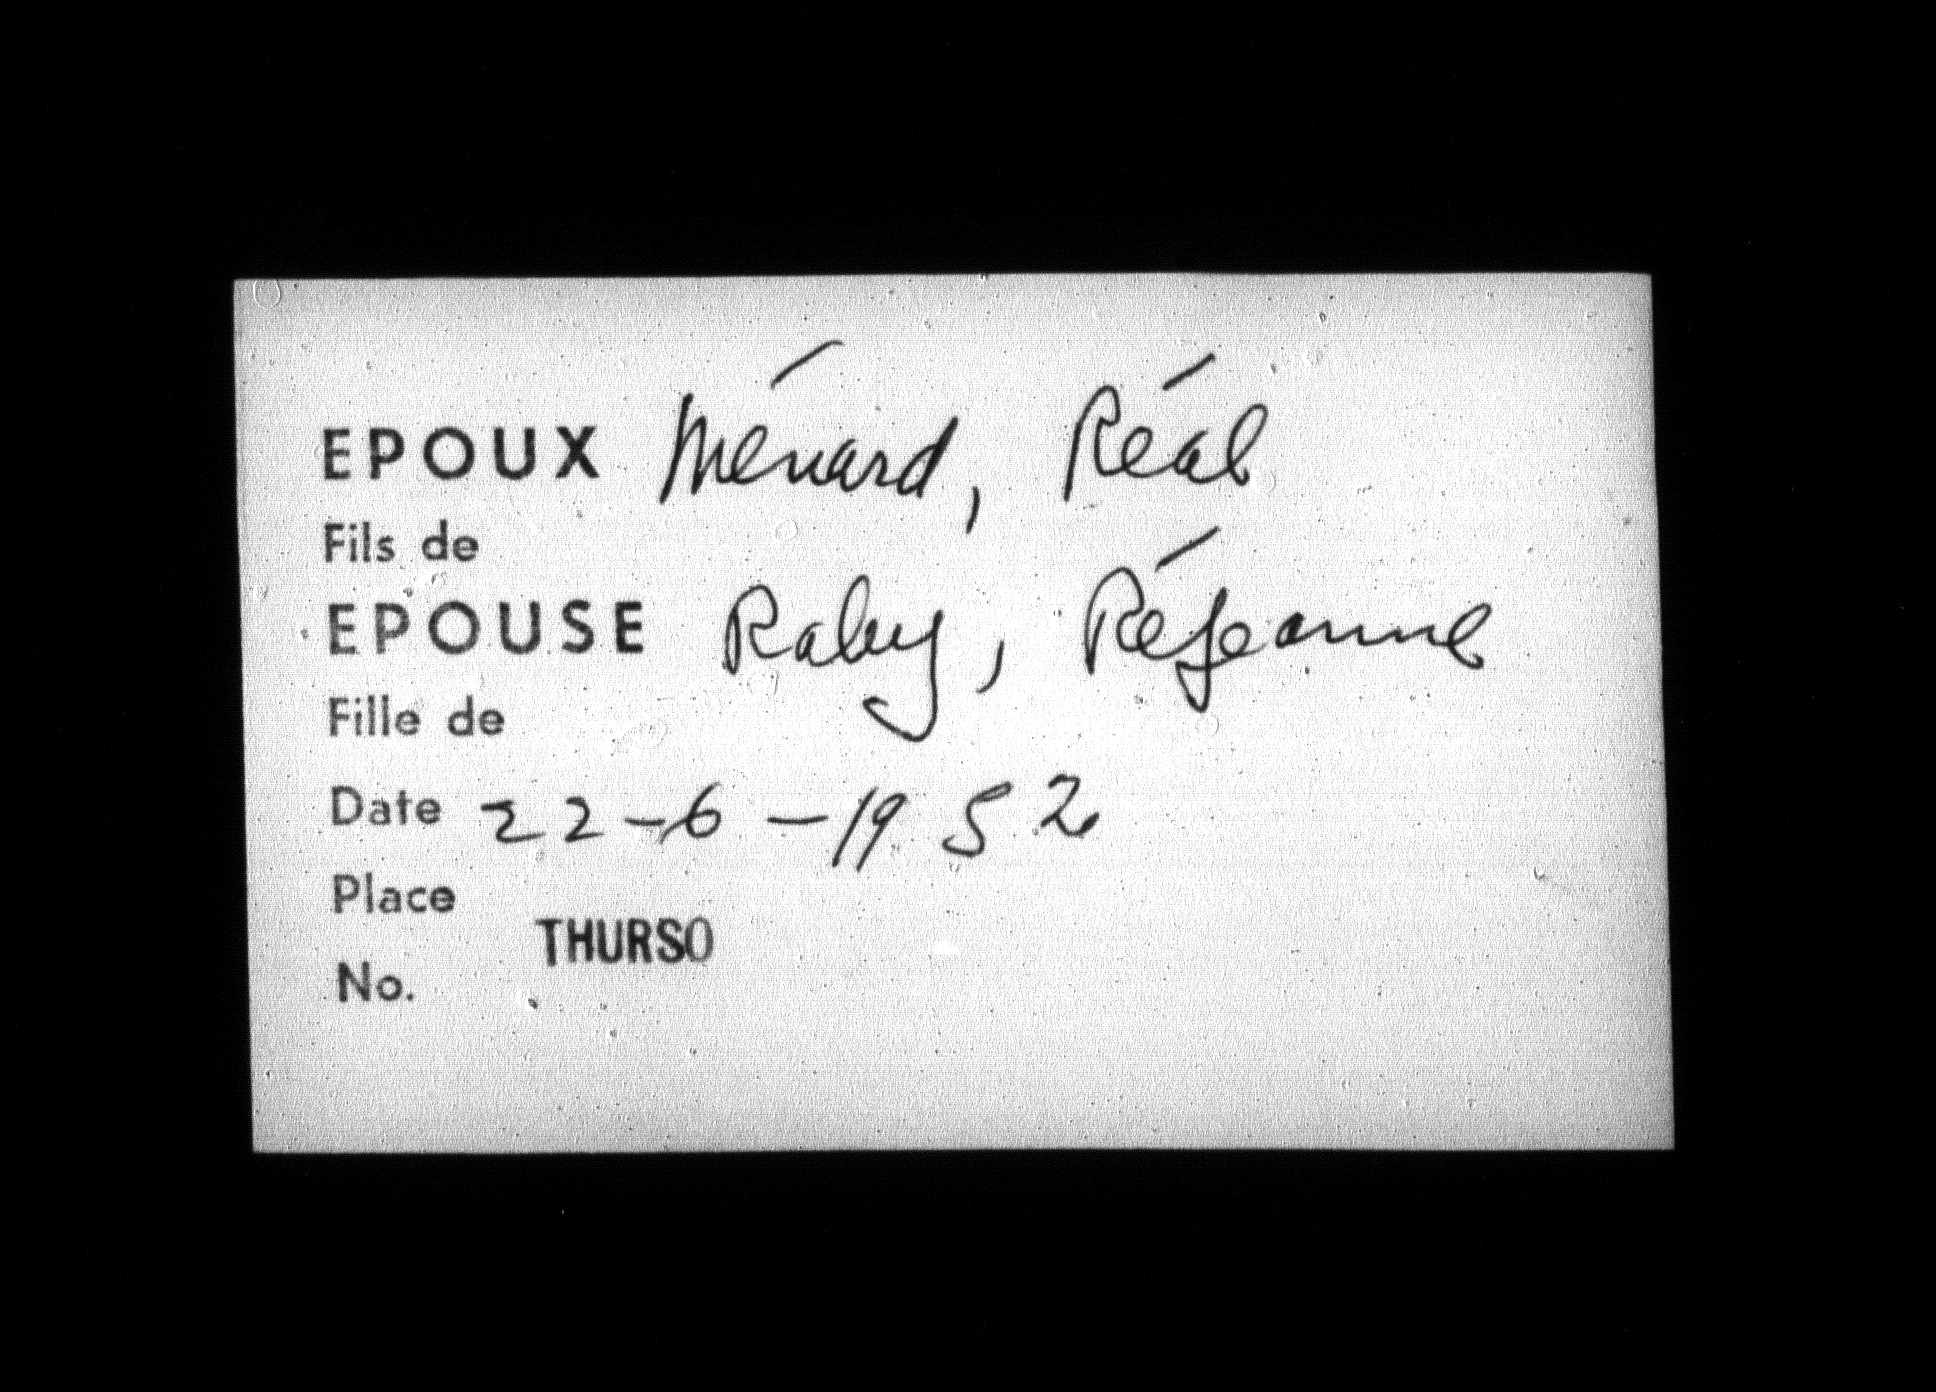 EPOUX Ménard, Réal
Fils de
EPOUSE Raby, Réjeanne
Fille de
Date 22-6-1952
Place
THURSO
No.